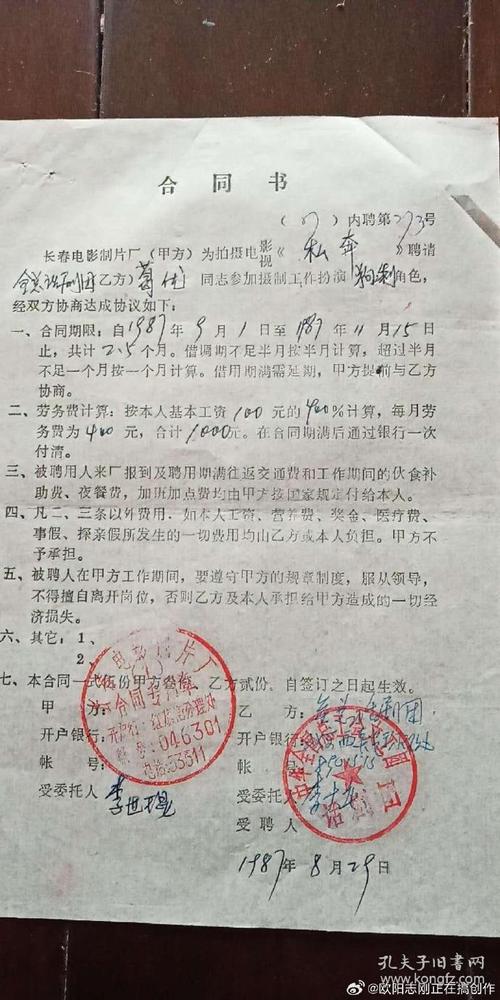 合同书
(87)内聘第273号
长春电影制片厂(甲方)为拍摄电影视《私奔》聘请
全总话剧团(乙方)葛优同志参加摄制工作扮演狗剩角色,
经双方协商达成协议如下:
一、合同期限:自1987年9月1日至1987年11月15日
止,共计2.5个月。借调期不足半月按半月计算,超过半月
不足一个月按一个月计算。借用期满需延期,甲方提前与乙方
协商。
二、劳务费计算:按本人基本工资100元的400%计算,每月劳
务费为400元,合计1000元。在合同期满后通过银行一次
付清。
三、被聘用人来厂报到及聘用期满往返交通费和工作期间的伙食补
助费、夜餐费,加班加点费均由甲方按国家规定付给本人。
四、凡二、三条以外费用.如本人工资、营养费、奖金、医疗费、
事假、探亲假所发生的一切费用均由乙方或本人负担。甲方不
予承担。
五、被聘人在甲方工作期间,要遵守甲方的规章制度,服从领导,
不得擅自离开岗位,否则乙方及本人承担给甲方造成的一切经
济损失。
六、其它:1、
2、
七、本合同一式伍份甲方叁份,乙方贰份。自签订之日起生效。
甲方: 乙方:全总话剧团
开户银行: 开户银行:
帐号: 帐号:
受委托人 李世 受委托人
受聘人
1987年8月29日
电影制片厂
合同专用章
046301
电话:53311
话剧团
孔夫子旧书网
@欧阳志刚正在搞创作